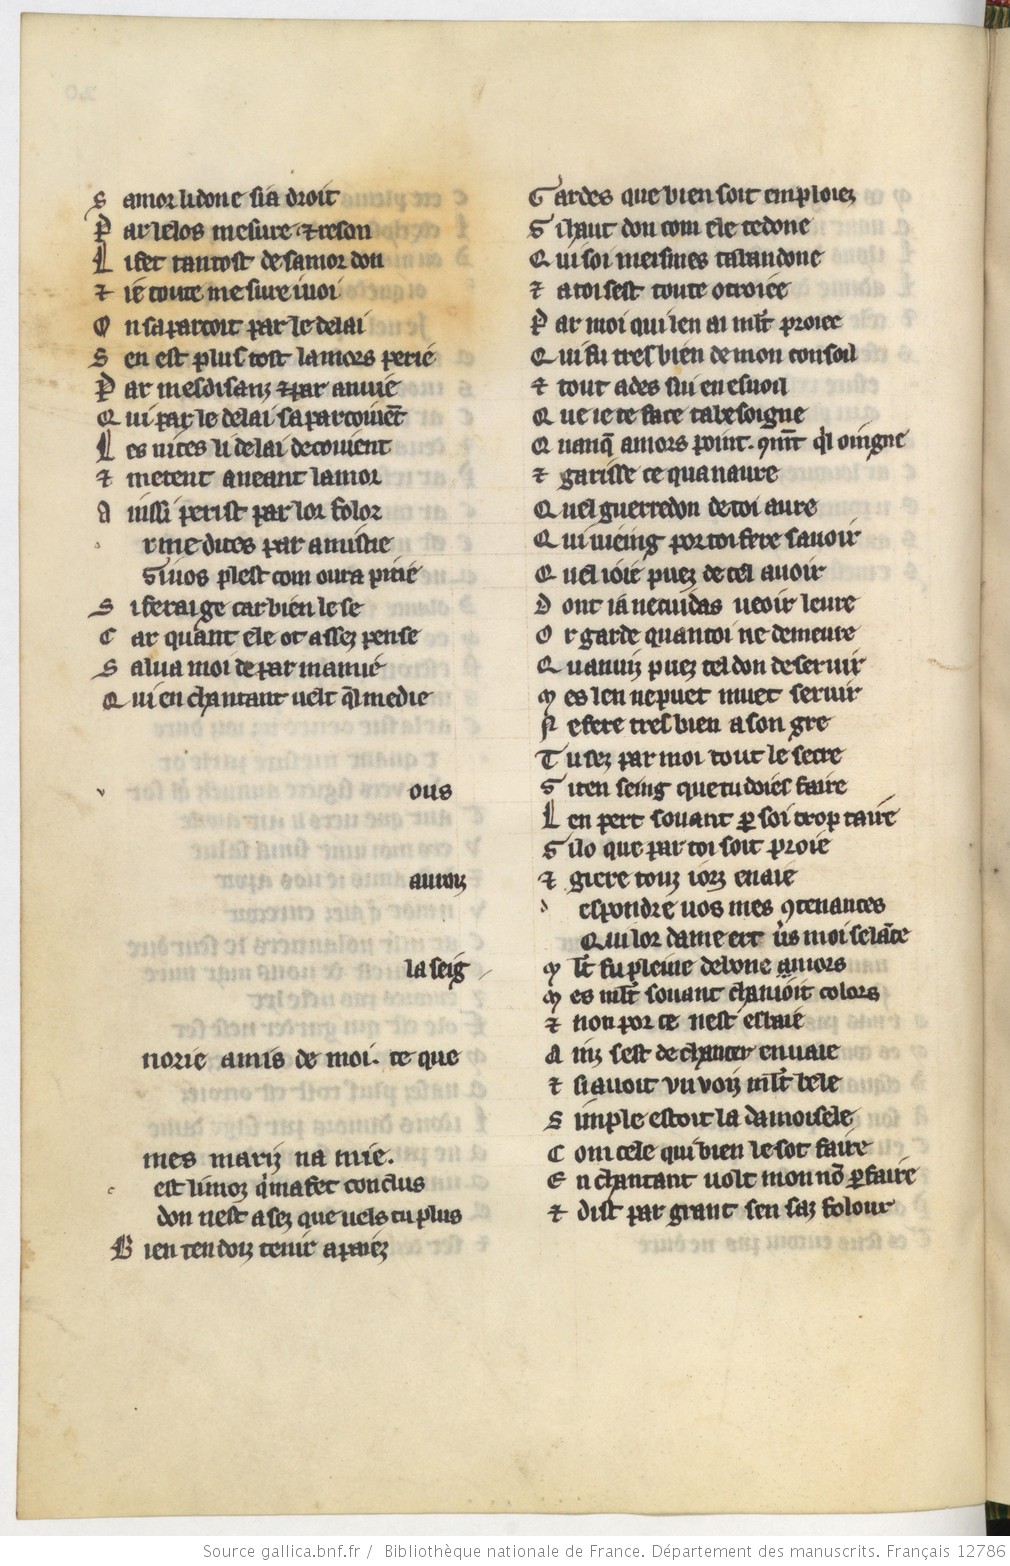 S amor li done si a droit
P ar le los mesure & reson
L i fet tantost de samor don
& ie toute mesure i voi
O n sapartoit par le delai
S en est plus tost lamors perie
P ar mesdisanz & par anuie
Q ui par le delai saparcoiuēt
L es nices li delai decoiuent
& metent a neant lamor
A inssi perist par lor folor
r me dites par amistie
Si uos plest com oura pitie
S i ferai ge car bien le se
C ar quant ele ot assez pense
S alua moi de par mamie
Q ui en chantant uelt q̄l medie
ous
auroiz
la seig
norie amis de moi. ce que
mes mariz na mie.
est li moz q̍ ma fet conclus
don nest asez que uels tu plus
B ien ten doiz tenir a paiez
G ardes que bien soit emploiez
S i haut don com ele te done
Q ui soi meismes tabandone
& a toi sest toute otroiee
P ar moi qui len ai ml̄t proiee
Q ui fu tres bien de mon consoil
& tout ades sui en esuoil
Q ue ie te face ta besoigne
Q uanq̄ amors point. ꝯuīt q̍l oingne
& garisse ce qua naure
Q uel guerredon de toi aure
Q ui uieing por toi fere sauoir
Q uel ioie puez de cel auoir
D ont ia ne cuidas ueoir leure
O r garde quan toi ne demeure
Q uanuiz puez tel don deseruir
M es len ne puet muet seruir
N e fere tres bien a son gre
T u sez par moi tout le secre
S i ten seing que tu doies faire
L en pert souant ꝑ soi trop taire
S i lo que par toi soit proie
& giete touz iorz en aie
espondre uos mes ꝯtenances
Qui lor dame ert u̍s moi selāce
M lt̄ fu pleine de bone amors
M es ml̄t souant chanioit colors
& non por ce nest esbaie
A inz sest de chanter enuaie
& si auoit vn voiz ml̄t bele
S imple estoit la damoisele
C om cele qui bien le sot faire
E n chantant uolt mon nō ꝑfaire
& dist par grant sen saz folour
Source gallica.bnf.fr / Bibliothèque nationale de France. Département des manuscrits. Français 12786